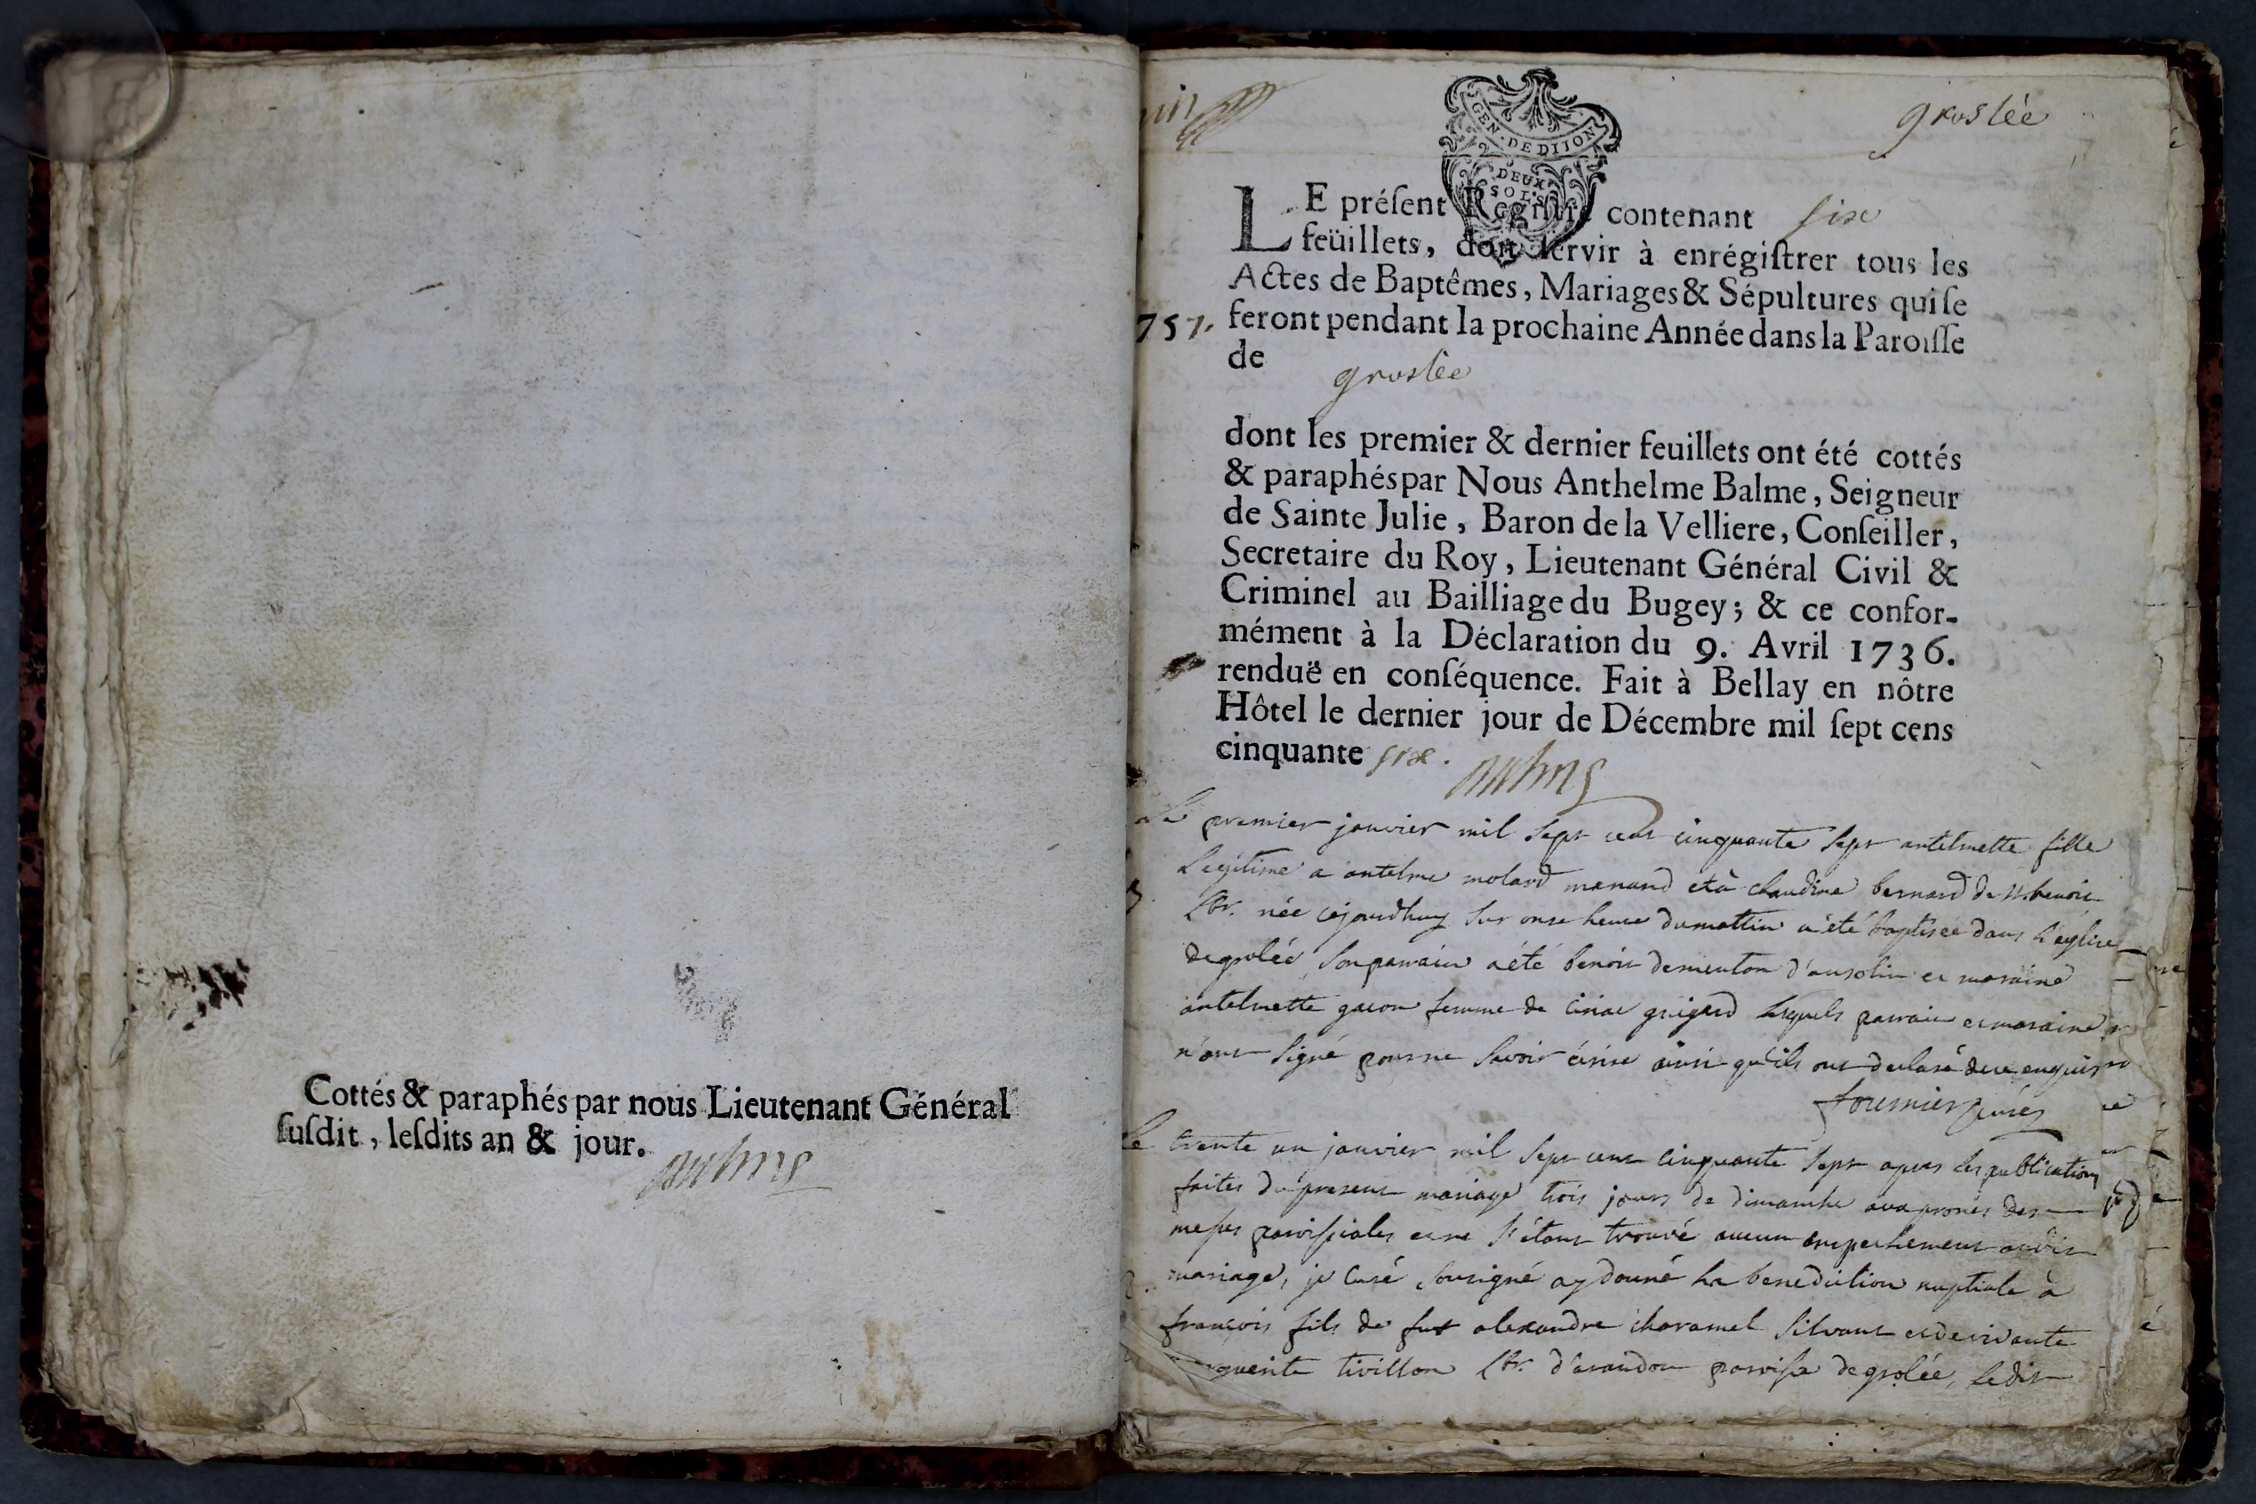 Cottés & paraphés par nous Lieutenant Général
ſuſdit, leſdits an & jour.
groslée
GEN. DE DIJON
DEUX
SOLS
LE préſent Regiſtre contenant six
feüillets, doit ſervir à enrégiſtrer tous les
Actes de Baptêmes, Mariages & Sépultures qui ſe
757. feront pendant la prochaine Année dans la Paroiſſe
de
groslée
dont les premier & dernier feuillets ont été cottés
& paraphés par Nous Anthelme Balme, Seigneur
de Sainte Julie, Baron de la Velliere, Conſeiller,
Secretaire du Roy, Lieutenant Général Civil &
Criminel au Bailliage du Bugey; & ce confor-
mément à la Déclaration du 9. Avril 1736.
renduë en conſéquence. Fait à Bellay en nôtre
Hôtel le dernier jour de Décembre mil ſept cens
cinquante six.
Le premier janvier mil sept cent cinquante sept antelmette fille
Legitime a antelme molard manand et à claudine bernard de st. benoit
Lbr. née cejourdhuy sur onse heure du mattin a été baptisée dans L'eglise
de grolée, son parrain a été benoit dementon d'ansolin et maraine
antelmette gacon femme de ciriac grigard lesquels parrain et maraine
n'ont signé pour ne savoir écrire ainsi qu'ils ont declaré de ce enquis
fournier curé
Le trente un janvier mil sept cent cinquante sept apres les publications
faites du present mariage trois jours de dimanche aux prones des
messes paroissiales et ne s'étant trouvé aucun empechement audit
mariage, je Curé sousigné ay donné la benediction nuptiale à
françois fils de fut alexandre charamel silvant et de vivante
tivillon Lbr. d'arandon paroisse de grolée, ledit